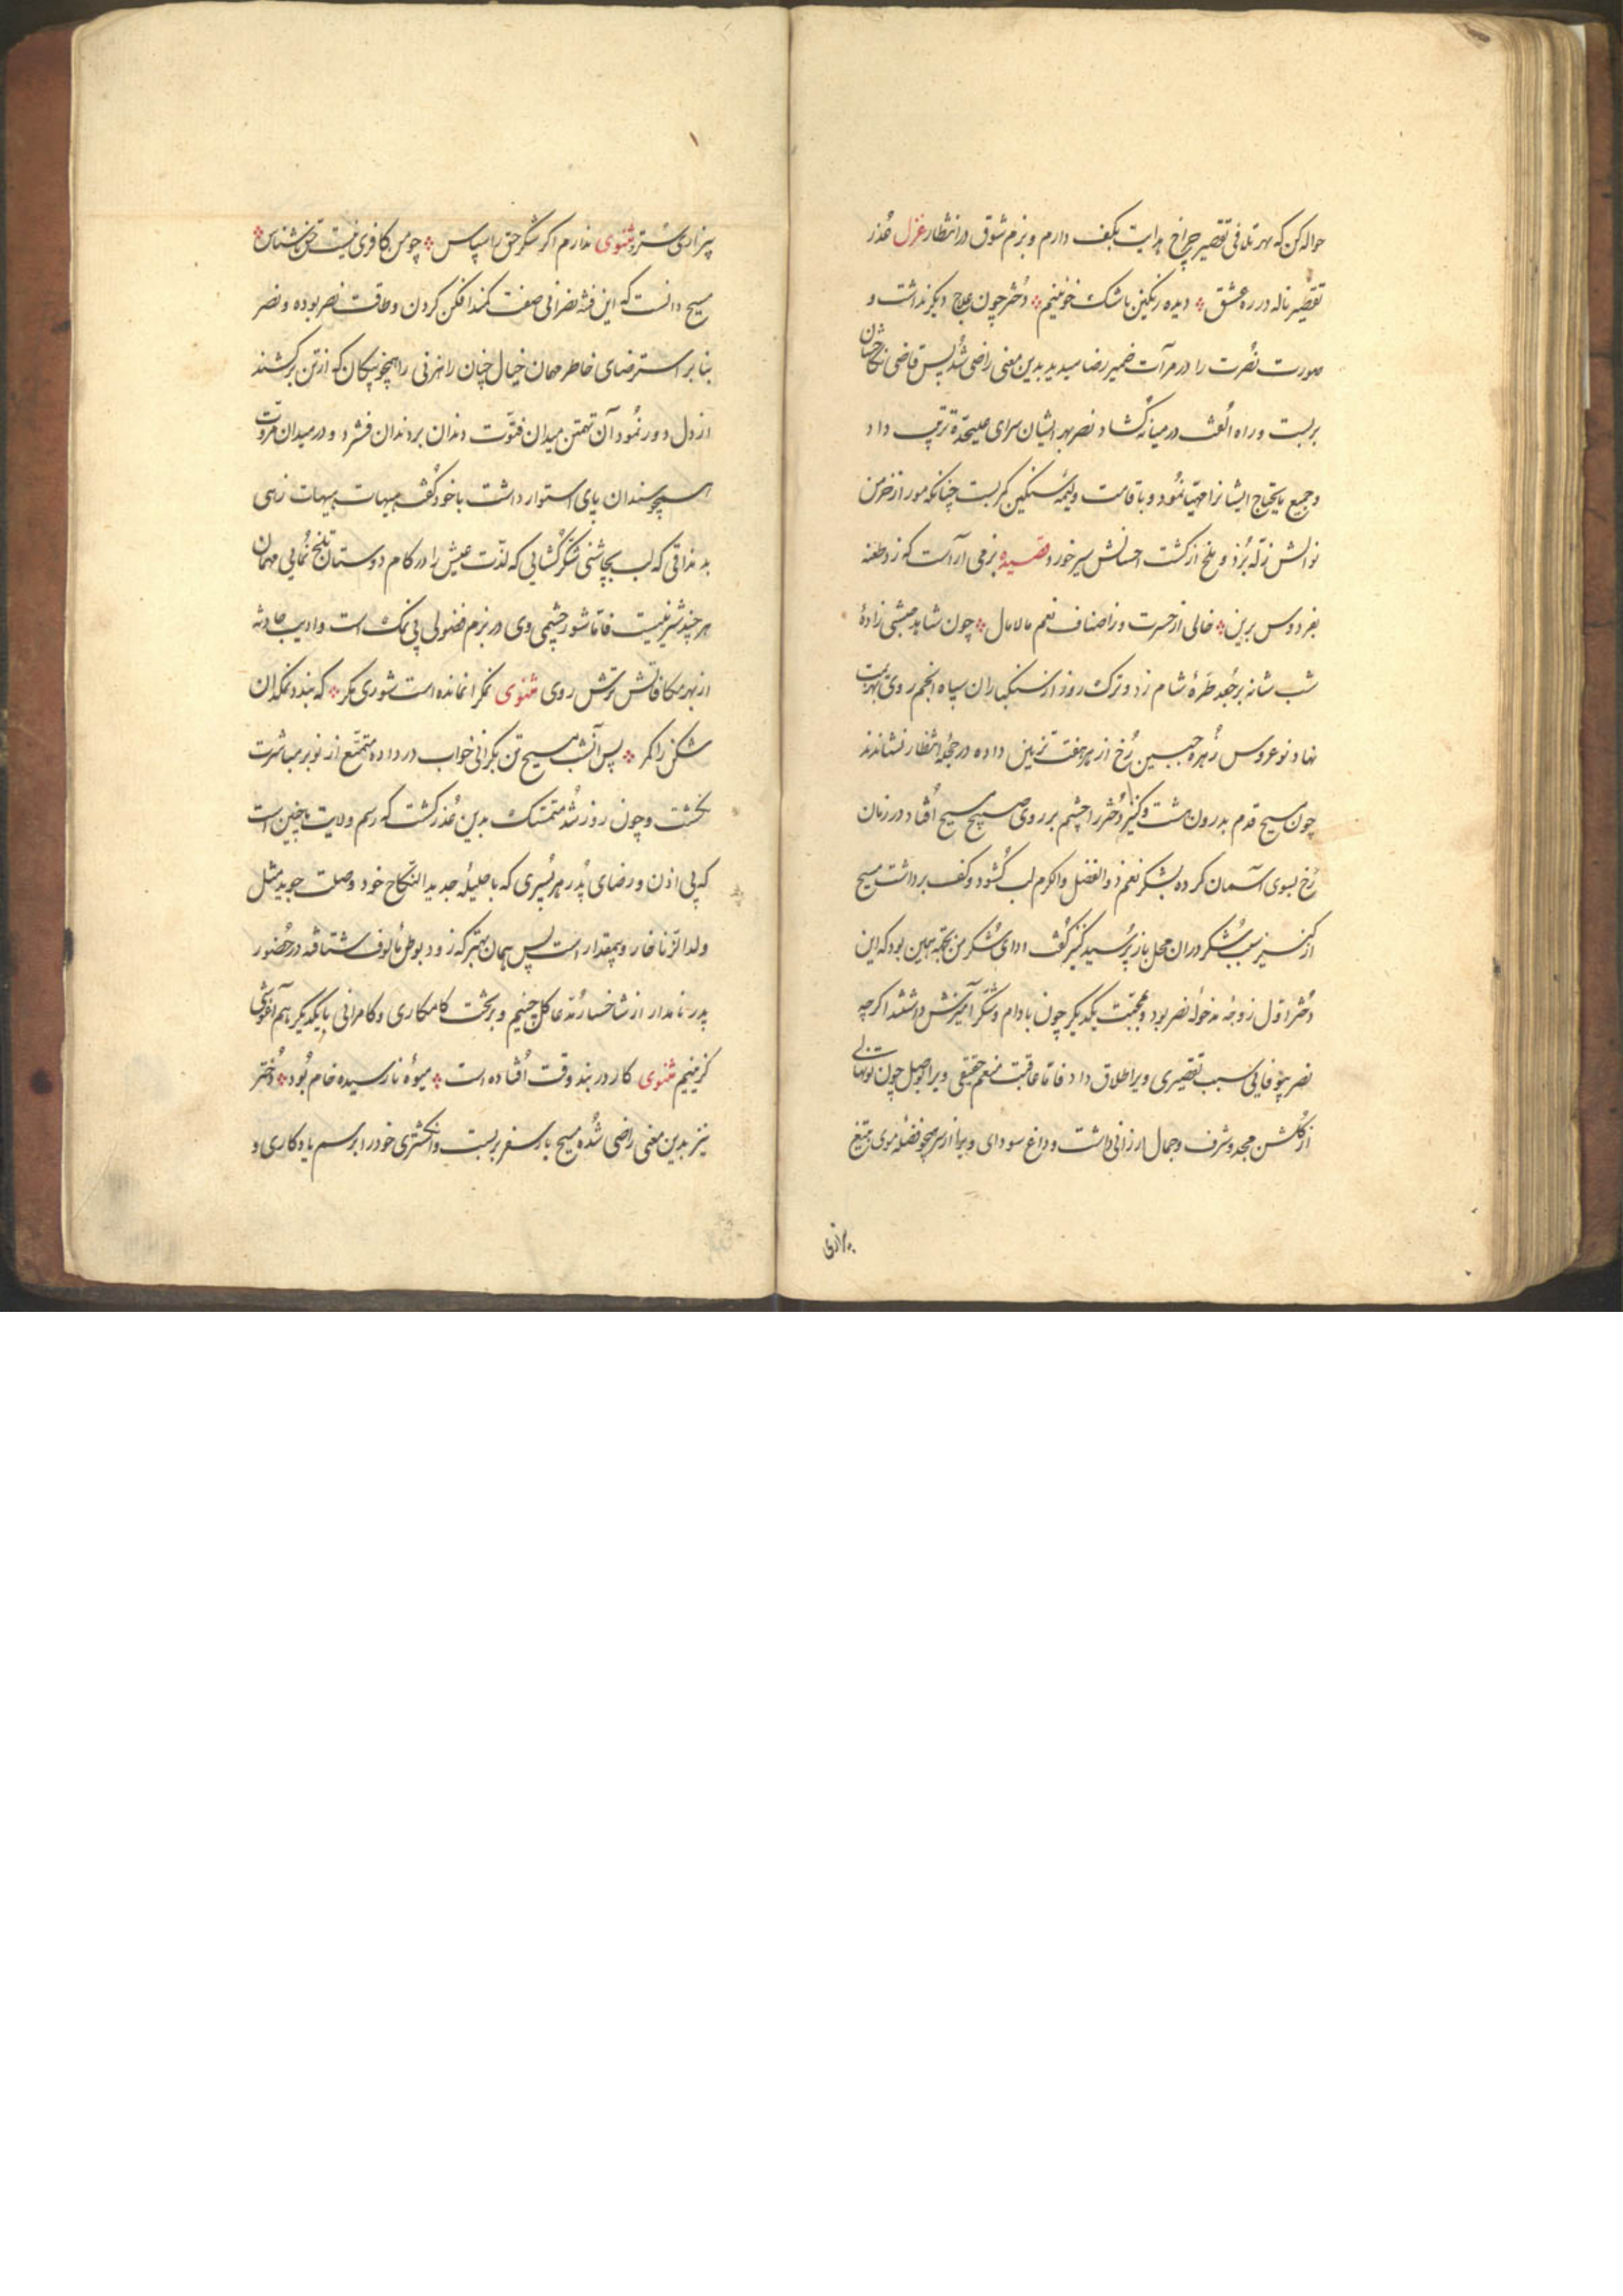 حواله کن که بهر تلافی تقصیر چراغ هدایت بکف دارم و بزم شوق در انتظار غزل عذر
تقصیر ناله در ره عشق ⁘ دیده رنگین باشک خونینم ⁘ دختر چون علاج دیگر نداشت و
صورت نصرت را در مرآت ضمیر رضا میدید بدین معنی راضی شد پس قاضی نکاحشان
بربست و راه الفت در میانه گشاد نصر بهر ایشان سرای علیحده ترتیب داد
و جمیع مایحتاج ایشانرا مهیا نمود و باقامت ولیمهٔ سنگین کمر بست چنانکه مور از خرمن
نوالش زله برد و ملخ از کشت احسانش سیر خورد قصیده بزمی آراست که زد طعنه
بفردوس برین ⁘ خالی از حسرت و ز اصناف نعم مالامال ⁘ چون شاهد حبشی زادهٔ
شب شانه بر جعد طرهٔ شام زد و ترک روز از سنگباران سپاه انجم روی بهزیمت
نهاد نوعروس زهره جبین رخ از هر هفت تزیین داده در حجلهٔ انتظار نشاندند
چون مسیح قدم بدرون هشت و کنیز دختر را چشم بر روی صبیح مسیح افتاد در زمان
رخ بسوی آسمان کرده بشکر نعم ذوالفضل والکرم لب گشود و کف برداشت مسیح
از کنیز سبب شکر در ان محل باز پرسید کنیز گفت ادای شکر من بجهة همین بود که این
دختر اول زوجهٔ مدخولهٔ نصر بود و محبت یکدیگر چون بادام و شکر آمیزش داشتند اگرچه
نصر بیوفایی سبب تقصیری ویرا طلاق داد فاما عاقبت منعم حقیقی ویرا بوصل چون تو نهالی
از گلشن مجد و شرف و جمال ارزانی داشت و داغ سودای ویرا از سر همچو فضلهٔ موی بتیغ
بیزاری
بیزاری سترد مثنوی ندارم اگر شکر حق را سپاس ⁘ چو من کافری نیست حق ناشناس ⁘
مسیح دانست که این فتنه نصرانی صفت کمند افکن گردن و طاقت نصر بوده و نصر
بنابر استرضای خاطر مهمان خیال چنان را هنرنی را همچو پیکان که از تن برکشند
از دل دور نمود آن تهمتن میدان فتوت دندان بر دندان فشرد و در میدان مروت
همچو سندان پای استوار داشت با خود گفت هیهات هیهات زهی
بد مذاقی که لب بچاشنی شکر گشایی که لذت عیش را در کام دوستان تلخ نمایی مهمان
هر چند شیرینیست فاما شور چشمی وی در بزم فضولی بی نمک است و ادیب حادثه
از بهر مکافاتش ترش روی مثنوی مگر نمانده است شوری مگر ⁘ که بندد نمکدان
شکن را کمر ⁘ پس آنشب مسیح تن بگرانی خواب در داده متمتع از نوبر مباشرت
نگشت و چون روز شد متمسک بدین عذر گشت که رسم ولایت ما چنین است
که بی اذن و رضای پدر هر پسری که با حلیلهٔ جدید النکاح خود وصلت جوید مثل
ولد الزنا خار و بیمقدار است پس همان بهتر که زود بوطن مألوف شتافته در حضور
پدر نامدار از شاخسار مدعا گل چنیم و بر تخت کامکاری و کامرانی با یکدیگر هم آغوشی
گزینیم مثنوی کار در بند وقت افتاده است ⁘ میوهٔ نارسیده خام بود ⁘ دختر
نیز بدین معنی راضی شده مسیح بار سفر بربست و انگشتری خود را برسم یادگاری و